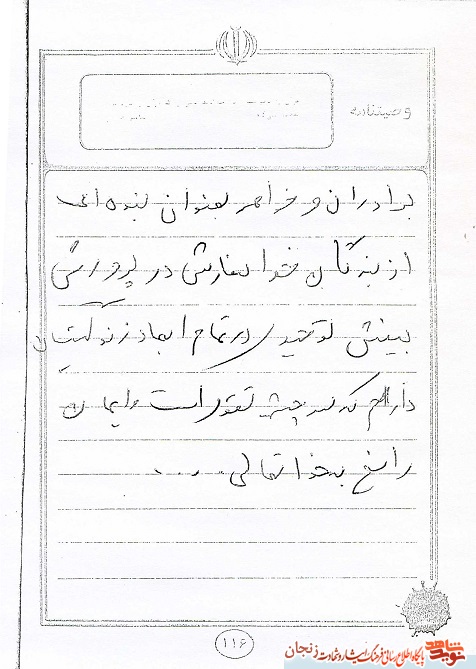 وصیتنامه
برادران و خواهر بعنوان بنده ای
از بندگان خدا سفارشی در پرورش
بینش توحیدی در تمام ابعاد زندگیتان
دارم که سرچشمه تقوی است و ایمان
راسخ بخدا تعالی ....
۱۱۶
نوید شاهد
پایگاه اطلاع رسانی فرهنگ ایثار و شهادت زنجان